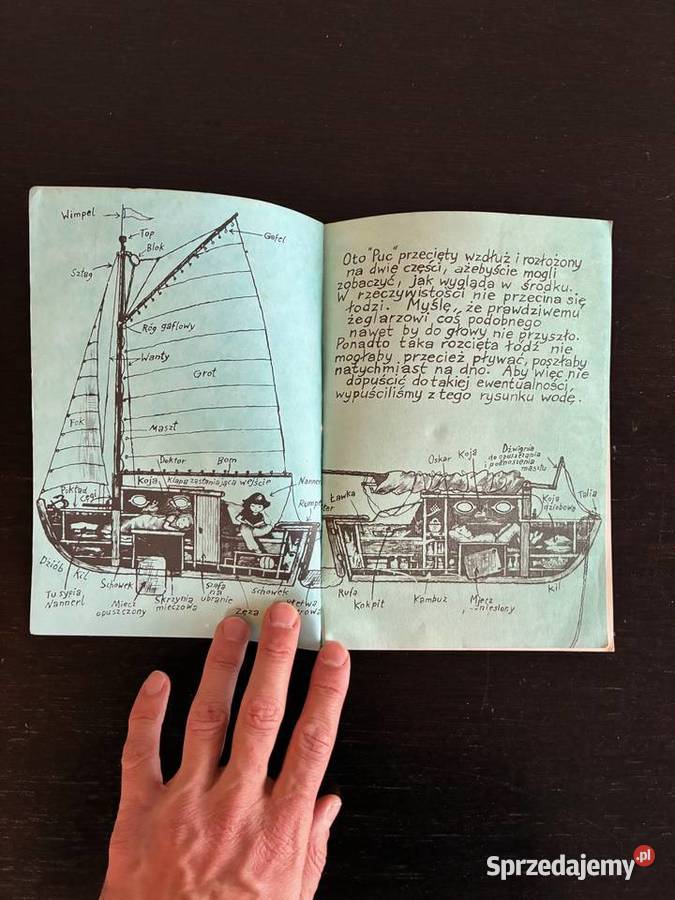 Wimpel
Top
Blok
Gafel
Sztag
Róg gaflowy
Wanty
Grot
Fok
Maszt
Doktor
Bom
Koja
Klapa zasłaniająca wejście
Pokład
Dziób
Kil
Tu sypia
Nannerl
Schowek
Miecz
opuszczony
Skrzynia
mieczowa
Szafa
na
ubranie
Zęza
Schowek
Oto "Puc" przecięty wzdłuż i rozłożony
na dwie części, ażebyście mogli
zobaczyć, jak wygląda w środku.
W rzeczywistości nie przecina się
łodzi. Myślę, że prawdziwemu
żeglarzowi coś podobnego
nawet by do głowy nie przyszło.
Ponadto taka rozcięta łódź nie
mogłaby przecież pływać, poszłaby
natychmiast na dno. Aby więc nie
dopuścić do takiej ewentualności,
wypuściliśmy z tego rysunku wodę.
Ławka
Oskar
Koja
Dźwignia
do opuszczania
i podnoszenia
masztu
Talia
Koja
dziobowa
Rufa
Kokpit
Kambuz
Miecz
Kil
Sprzedajemy.pl